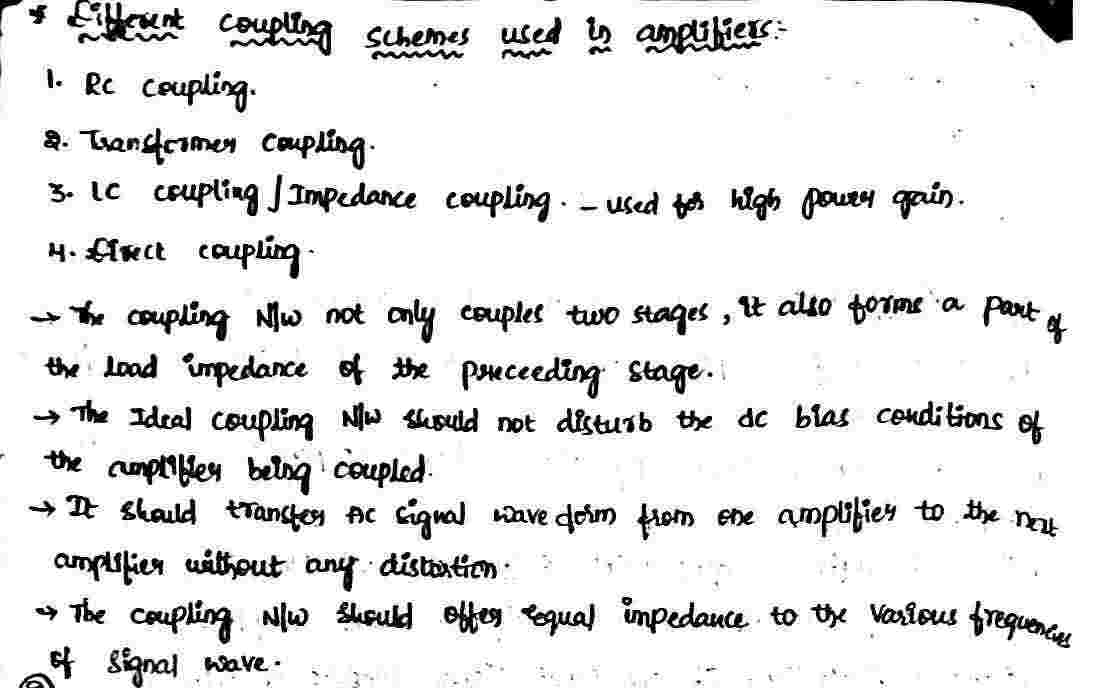 * Different coupling schemes used in amplifiers:-
1. RC coupling.
2. Transformer coupling.
3. LC coupling / Impedance coupling. - used for high power gain.
4. Direct coupling.
→ The coupling N/W not only couples two stages, it also forms a part of
the load impedance of the preceeding stage.
→ The Ideal coupling N/W should not disturb the dc bias conditions of
the amplifier being coupled.
→ It should transfer AC signal wave form from one amplifier to the next
amplifier without any distortion.
→ The coupling N/W should offer equal impedance to the various frequencies
of signal wave.